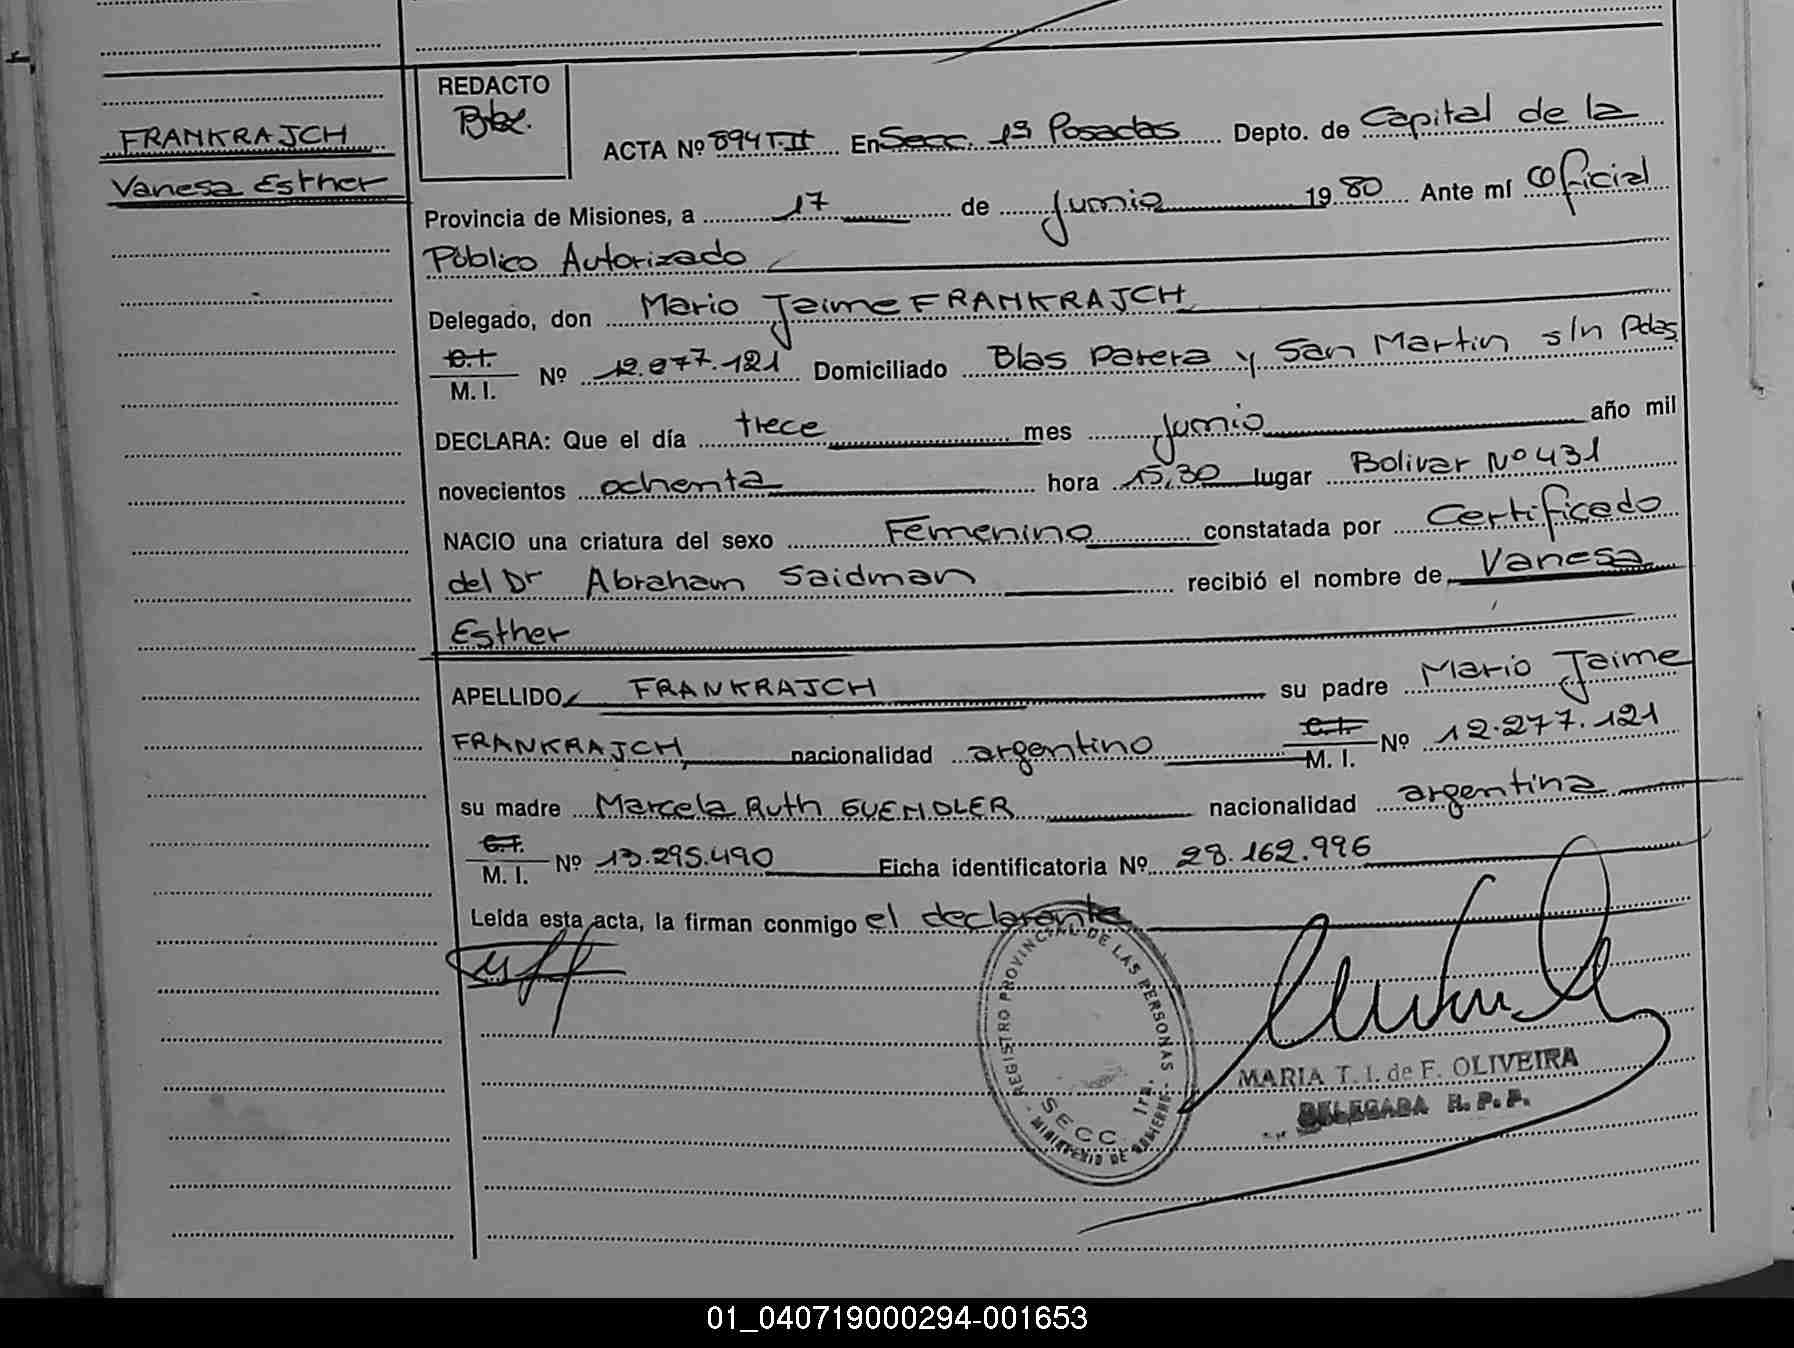 REDACTO
FRANKRAJCH
Vanesa Esther
ACTA Nº 894 T.II En Secc. 1ª Posadas Depto. de Capital de la
Provincia de Misiones, a 17 de Junio 1980 Ante mí Oficial
Público Autorizado
Delegado, don Mario Jaime FRANKRAJCH
C.I.
M. I. Nº 12.277.121 Domiciliado Blas Parera y San Martin s/n Pdas
DECLARA: Que el día trece mes Junio año mil
novecientos ochenta hora 15,30 lugar Bolivar Nº 431
NACIO una criatura del sexo Femenino constatada por Certificado
del Dr Abraham Saidman recibió el nombre de Vanesa
Esther
APELLIDO FRANKRAJCH su padre Mario Jaime
FRANKRAJCH, nacionalidad argentino C.I. M. I. Nº 12.277.121
su madre Marcela Ruth GUENDLER nacionalidad argentina
C.I.
M. I. Nº 13.295.490 Ficha identificatoria Nº 28.162.996
Leída esta acta, la firman conmigo el declarante
REGISTRO PROVINCIAL DE LAS PERSONAS
SECC. 1ra.
MINISTERIO DE GOBIERNO
MARIA T. I. de F. OLIVEIRA
DELEGADA R. P. P.
01_040719000294-001653